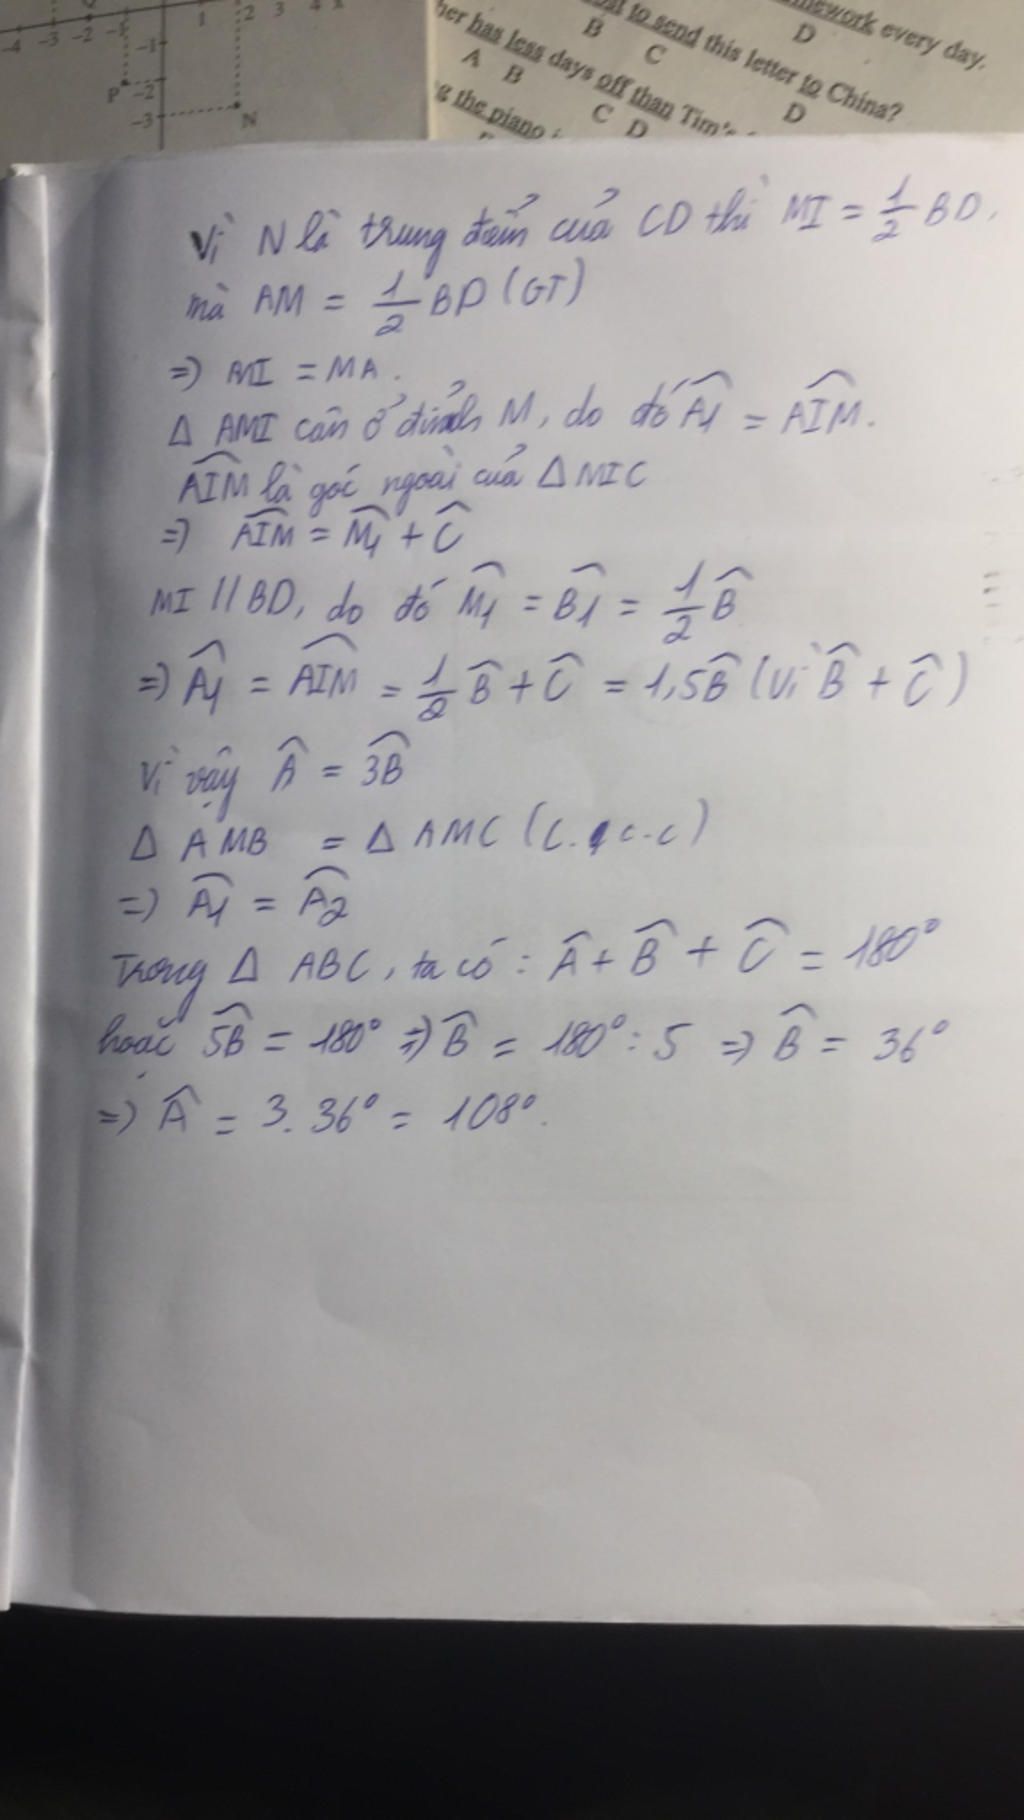 -4 -3 -2 -1 1 2 3 4 x
-1
P -2
-3 N
homework every day.
D
to send this letter to China?
B C D
her has less days off than Tim's
A B C D
the piano
Vì N là trung điểm của CD thì MI = 1/2 BD.
mà AM = 1/2 BD (GT)
=> MI = MA.
Δ AMI cân ở đỉnh M, do đó Â1 = AIM̂.
AIM̂ là góc ngoài của Δ MIC
=> AIM̂ = M̂1 + Ĉ
MI // BD, do đó M̂1 = B̂1 = 1/2 B̂
=> Â1 = AIM̂ = 1/2 B̂ + Ĉ = 1,5B̂ (vì B̂ + Ĉ)
Vì vậy Â = 3B̂
Δ AMB = Δ AMC (c.c.c)
=> Â1 = Â2
Trong Δ ABC, ta có : Â + B̂ + Ĉ = 180°
hoặc 5B̂ = 180° => B̂ = 180° : 5 => B̂ = 36°
=> Â = 3. 36° = 108°.